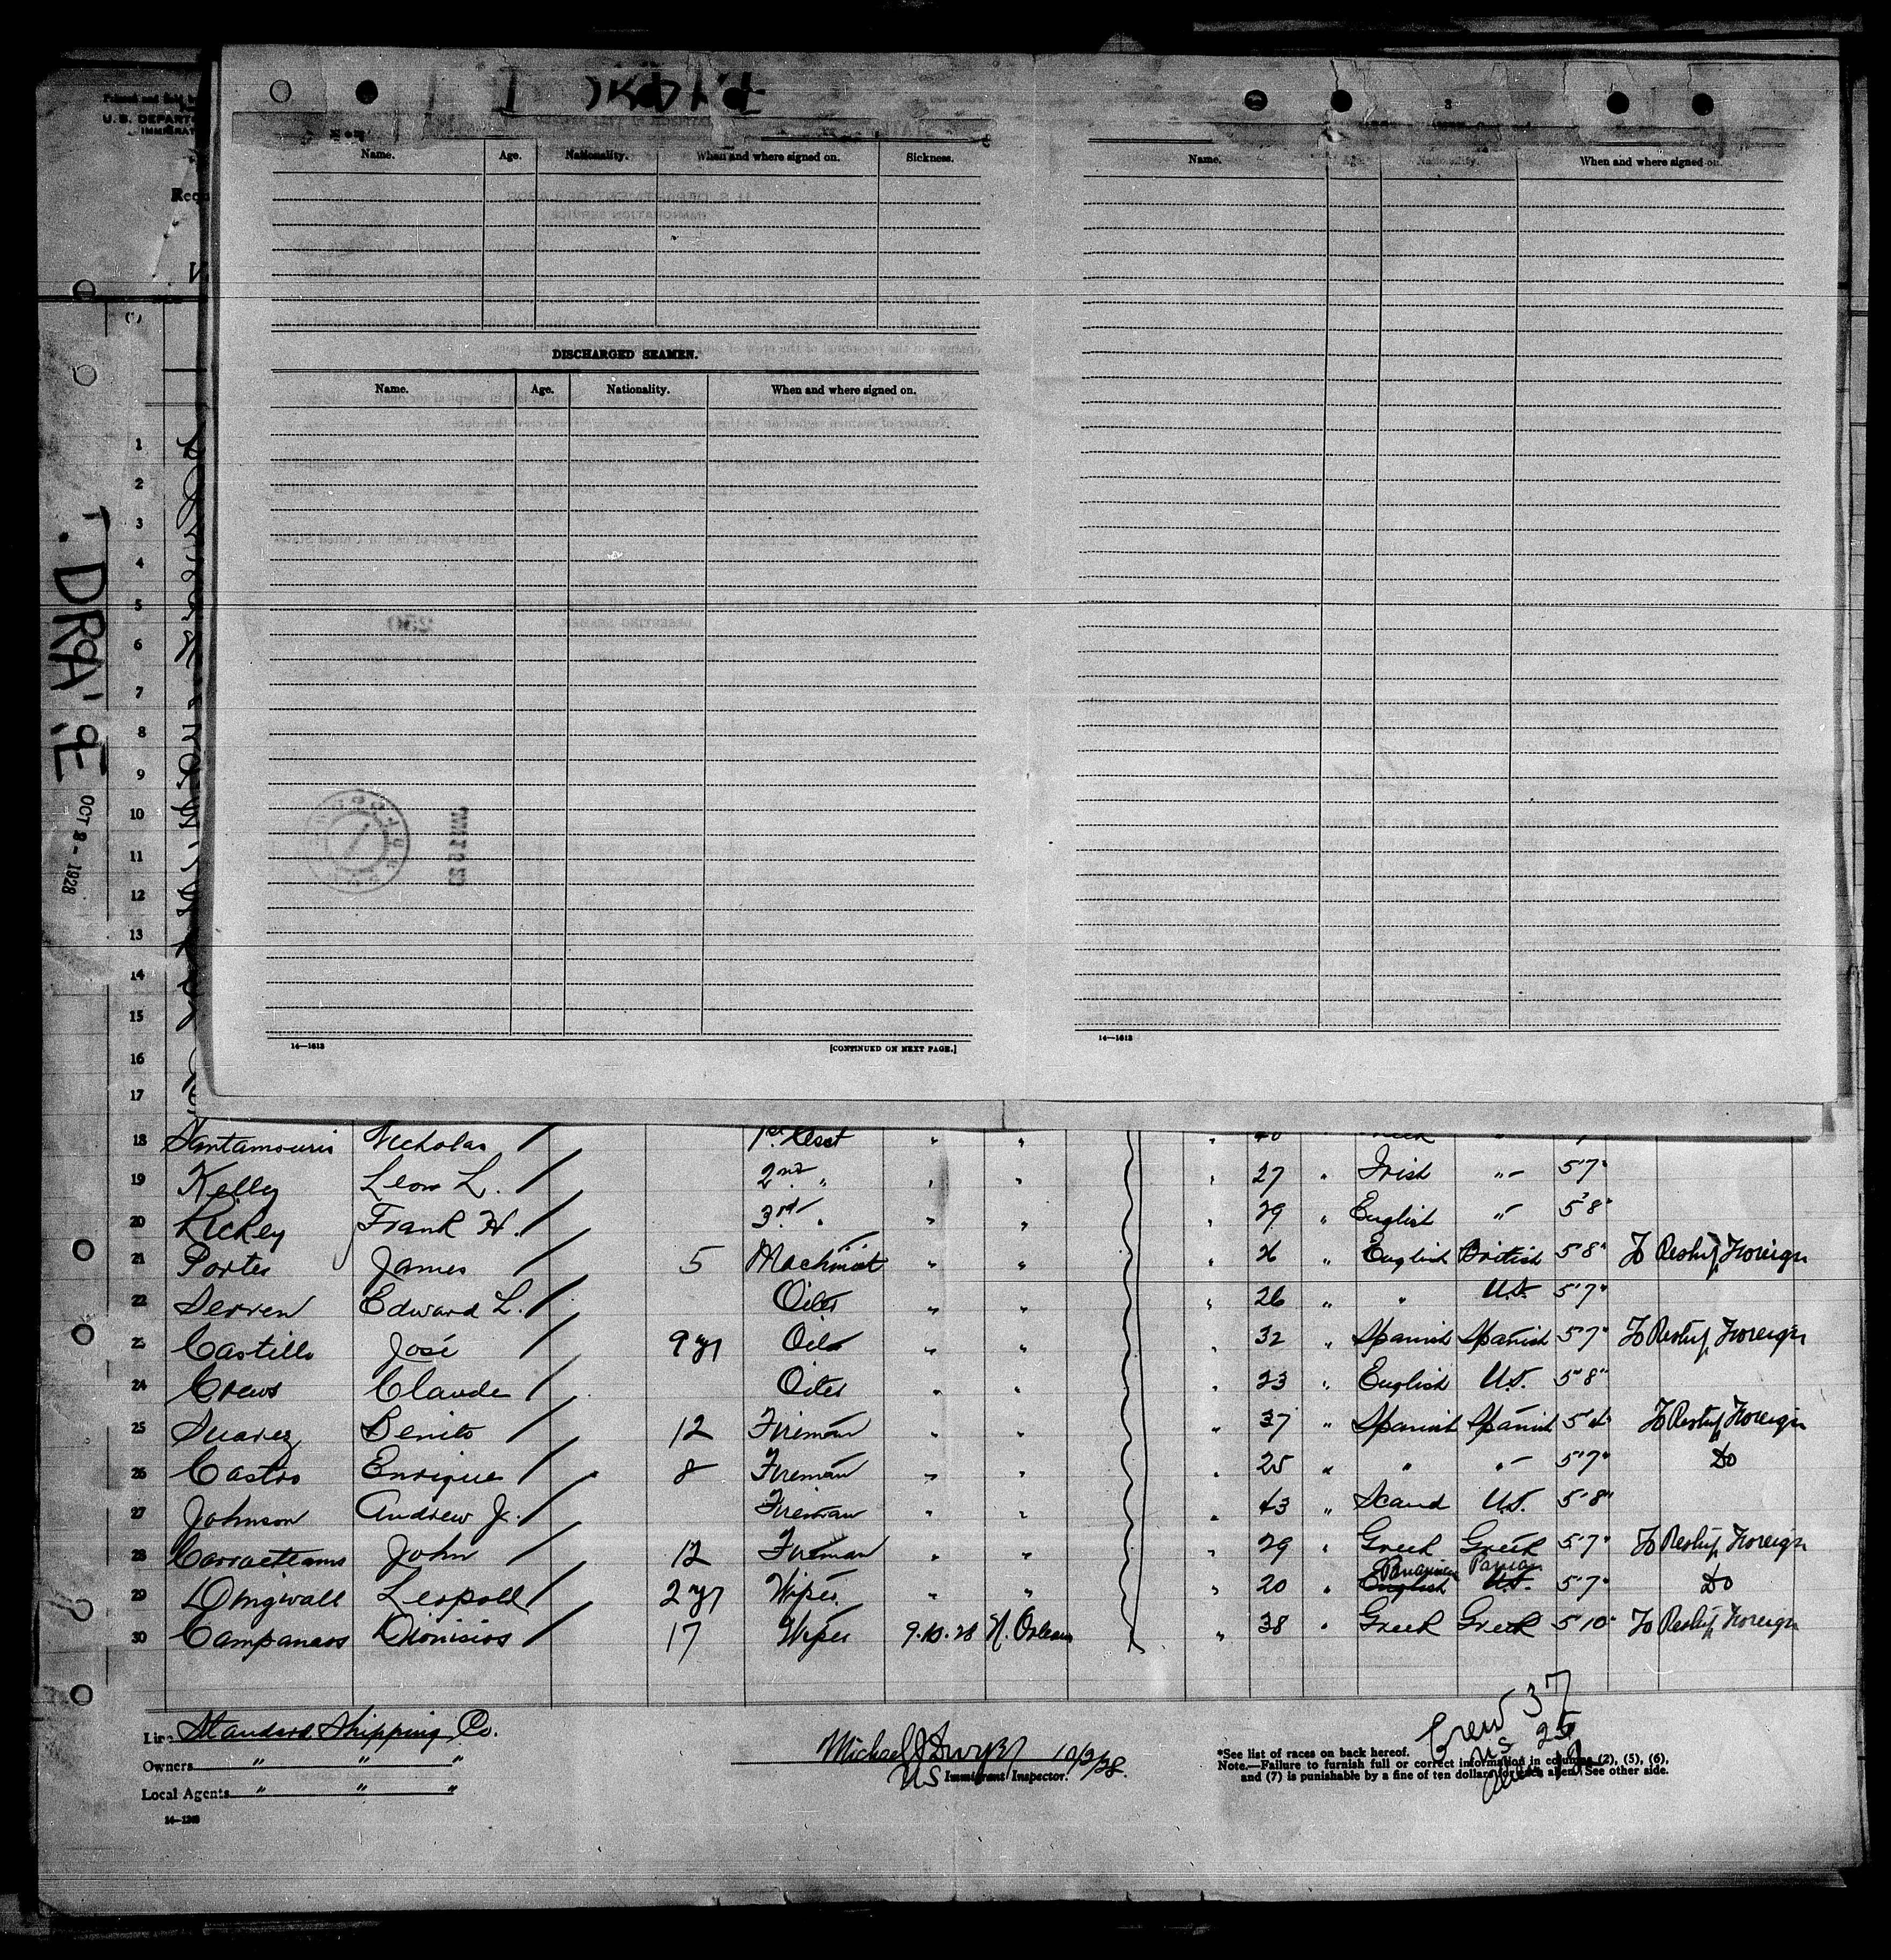 U. S. DEPART
IMMIGRAT
Name. Age. Nationality. When and where signed on. Sickness.
DISCHARGED SEAMEN.
Name. Age. Nationality. When and where signed on.
14—1613 [CONTINUED ON NEXT PAGE.]
3
Name. Age. Nationality. When and where signed on.
14—1613
T. DRAKE
OCT 2 - 1928
1
2
3
4
5
6
7
8
9
10
11
12
13
14
15
16
17
18 Santamouris Nicholas 1st Asst " "
19 Kelly Leon L. 2nd " " " " 27 " Irish " 5'7"
20 Rickey Frank H. 3rd " " " " 29 " English " 5'8"
21 Porter James 5 Machinist " " " 26 " English British 5'8" To Reship Foreign
22 Serren Edward L. Oiler " " " 26 " " U.S. 5'7"
23 Castillo José 9 yr Oiler " " " 32 " Spanish Spanish 5'7" To Reship Foreign
24 Crews Claude Oiler " " " 23 " English U.S. 5'8"
25 Suarez Benito 12 Fireman " " " 37 " Spanish Spanish 5'4" To Reship Foreign
26 Castro Enrique 8 Fireman " " " 25 " " " 5'7" Do
27 Johnson Andrew J. Fireman " " " 43 " Scand U.S. 5'8"
28 John 12 Fireman " " " 29 " Greek Greek 5'7" To Reship Foreign
29 Dingwall Leopold 2 yr Wiper " " " 20 " English U.S. 5'7" Do
30 Campaneos Dionisios 17 Wiper 9.10.28 N. Orleans " 38 " Greek Greek 5'10" To Reship Foreign
Line Standard Shipping Co.
Owners " " "
Local Agents " " "
14—1263
Michael J Dwyer 10/2/28.
US Immigrant Inspector.
Crew 37
US 25
*See list of races on back hereof.
Note.—Failure to furnish full or correct information in columns (2), (5), (6),
and (7) is punishable by a fine of ten dollars for each alien. See other side.